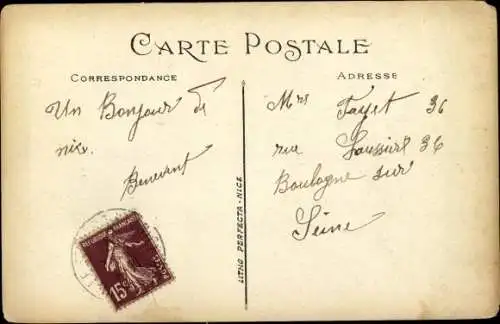 CARTE POSTALE
CORRESPONDANCE
Un Bonjour de
nice.
Benevent
LITHO PERFECTA - NICE
ADRESSE
Mrs Fayet 36
rue 36
Boulogne sur
Seine
REPUBLIQUE FRANÇAISE
15c